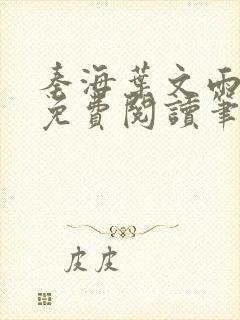 秦海葉文雨
免費閱讀筆
皮皮